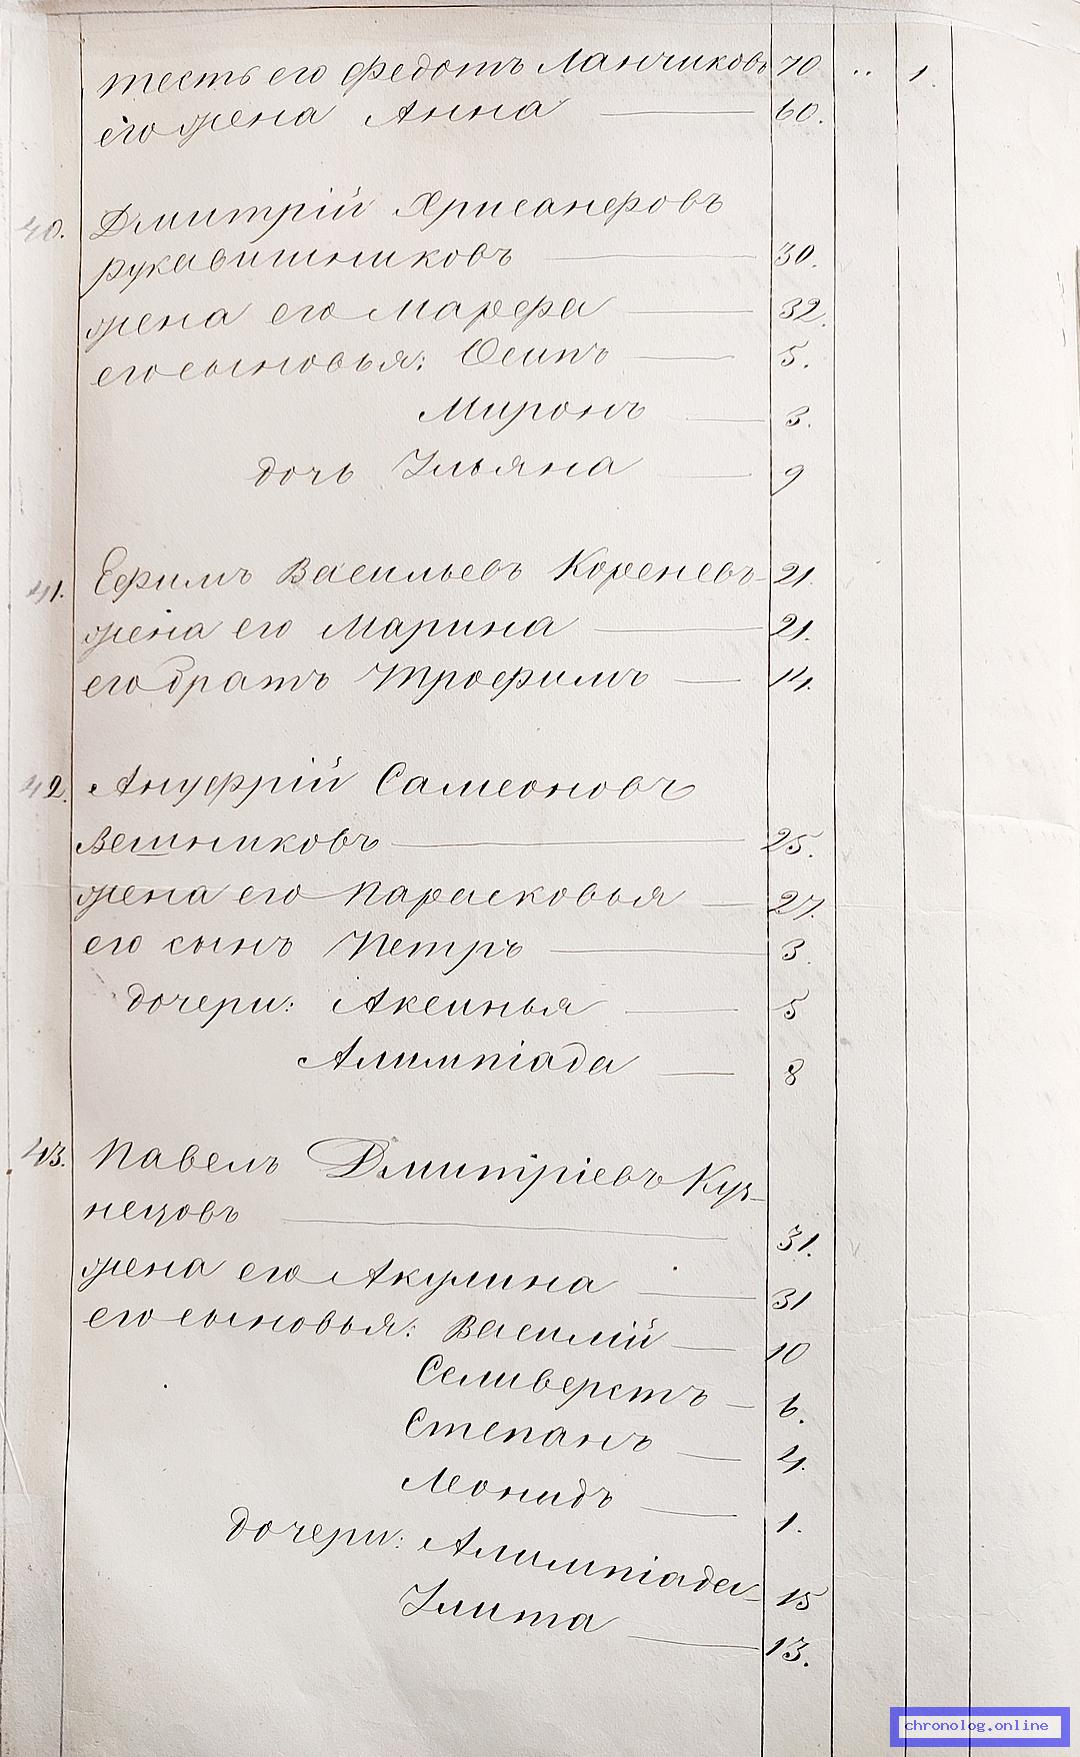 тесть его Федотъ Ланчиковъ 70 .. 1.
его жена Анна — 60.
40. Дмитрій Хрисанфовъ
Рукавишниковъ — 30.
жена его Марфа — 32.
его сыновья: Осипъ — 5.
Миронъ — 3.
дочь Ульяна — 9
41. Ефимъ Васильевъ Кореневъ - 21.
жена его Марина — 21.
его братъ Трофимъ — 14.
42. Ануфрій Самсоновъ
Вешниковъ — 25.
жена его Парасковья — 27.
его сынъ Петръ — 3.
дочери: Аксинья — 5
Алимпіада — 8
43. Павелъ Дмитріевъ Куз-
нецовъ — 31.
жена его Акулина — 31
его сыновья: Василій — 10
Селиверстъ — 6.
Степанъ — 4.
Леонидъ — 1.
дочери: Алимпіада - 15
Улита — 13.
chronolog.online